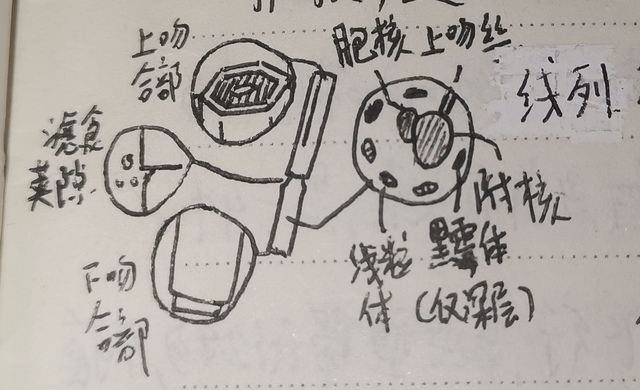 上吻
合部
胞核 上吻丝
线列
滤食
附核
线粒
体
体(仅深层)
下吻
合部